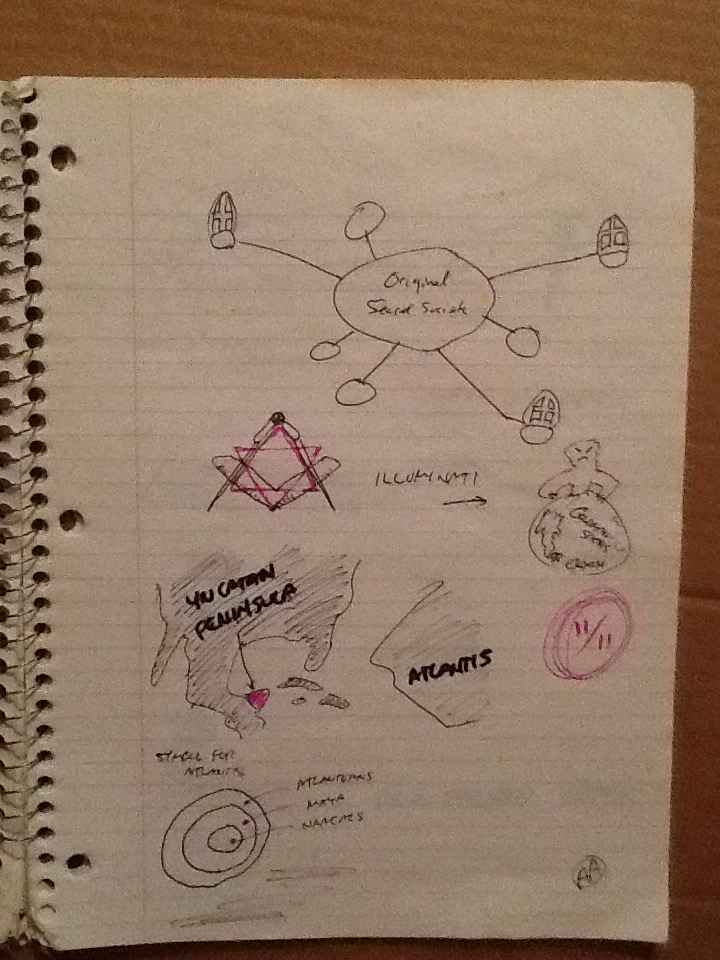 Original
Secret Society
ILLUMINATI
YUCATAN
PENINSULA
ATLANTIS
11/11
SYMBOL FOR
ATLANTIS
ATLANTEANS
MAYA
AA